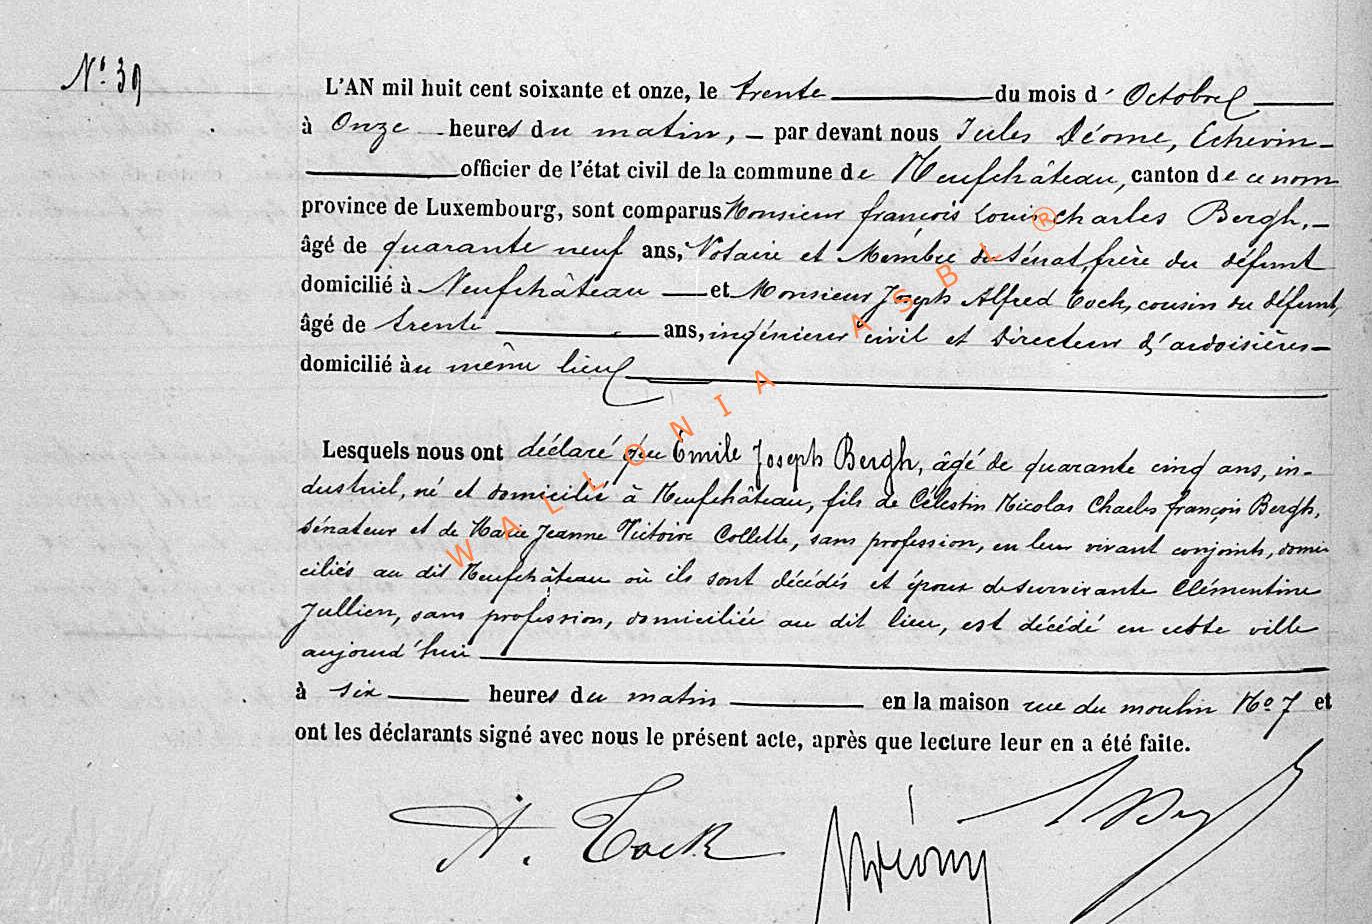 N° 39
L'AN mil huit cent soixante et onze, le trente du mois d' Octobre
à Onze heures du matin, – par devant nous Jules Déome, Echevin
officier de l'état civil de la commune de Neufchâteau, canton de ce nom
province de Luxembourg, sont comparus Monsieur françois Louis Charles Bergh,
âgé de quarante neuf ans, Notaire et Membre du Sénat, frère du défunt
domicilié à Neufchâteau et Monsieur Joseph Alfred Tock, cousin du défunt,
âgé de trente ans, ingénieur civil et Directeur d'ardoisières
domicilié au même lieu
Lesquels nous ont déclaré que Emile Joseph Bergh, âgé de quarante cinq ans, in-
dustriel, né et domicilié à Neufchâteau, fils de Célestin Nicolas Charles françois Bergh,
sénateur et de Marie Jeanne Victoire Collette, sans profession, en leur vivant conjoints, domi
ciliés au dit Neufchâteau où ils sont décédés et époux de survivante Clémentine
Jullien, sans profession, domiciliée au dit lieu, est décédé en cette ville
aujourd'hui
à six heures du matin en la maison rue du moulin No 7 et
ont les déclarants signé avec nous le présent acte, après que lecture leur en a été faite.
A. Tock
WALLONIA ASBL ®